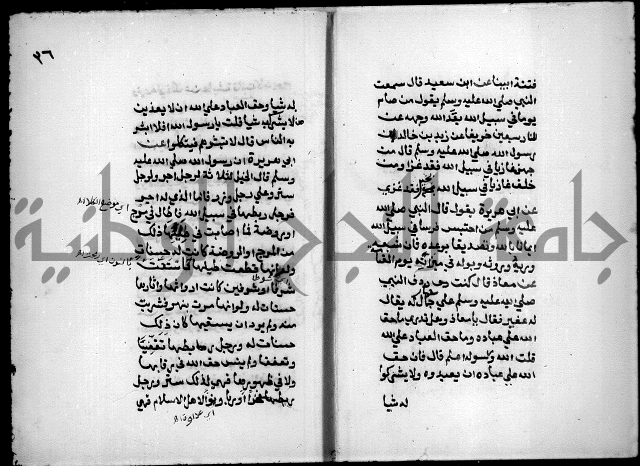 فتنة ابينا عن ابى سعيد قال سمعت
النبي صلى الله عليه وسلم يقول من صام
يوما في سبيل الله بعد الله وجهه عن
النار سبعين خريفا عن زيد بن خالد ان
رسول الله صلى الله عليه وسلم قال من
جهز غازيا في سبيل الله فقد غزا ومن
خلف غازيا في سبيل الله بخير فقد غزى
عن ابى هريرة يقول قال النبي صلى الله
عليه وسلم من احتبس فرسا في سبيل الله
ايمانا بالله وتصديقا بوعده فان شبعه
وريه وروثه وبوله في ميزانه يوم القيامة
عن معاذ قال كنت ردف النبي
صلى الله عليه وسلم على حمار له يقال
له عفير فقال يا معاذ وهل تدرى ما حق
الله على عباده وما حق العباد على الله
قلت الله ورسوله اعلم قال فان حق
الله على عباده ان يعبدوه ولا يشركوا
له شيا
٣٦
به شيا وحق العباد على الله ان لا يعذب
من لا يشرك به شيا قلت يا رسول الله افلا ابشر
به الناس قال لا تبشرهم فيتكلوا عن
ابى هريرة ان رسول الله صلى الله عليه
وسلم قال الخيل لثلاثة لرجل اجر ولرجل
ستر وعلى رجل وزر فاما الذى له اجر
فرجل ربطها في سبيل الله فاطال في مرج
او روضة فما اصابت في طيلها ذلك
من المرج او الروضة كانت له حسنات
ولو انها قطعت طيلها فاستنت
شرفا او شرفين كانت ارواثها واثارها
حسنات له ولو انها مرت بنهر فشربت
منه ولم يرد ان يسقيها كان ذلك
حسنات له ورجل ربطها تغنيا
وتعففا ولم ينس حق الله في رقابها
ولا في ظهورها فهو لذلك ستر ورجل
ربطها فخرا ورياء ونواء لاهل الاسلام فهي
اى موضع الكلا
اى عداوة
جامعة النجاح الوطنية